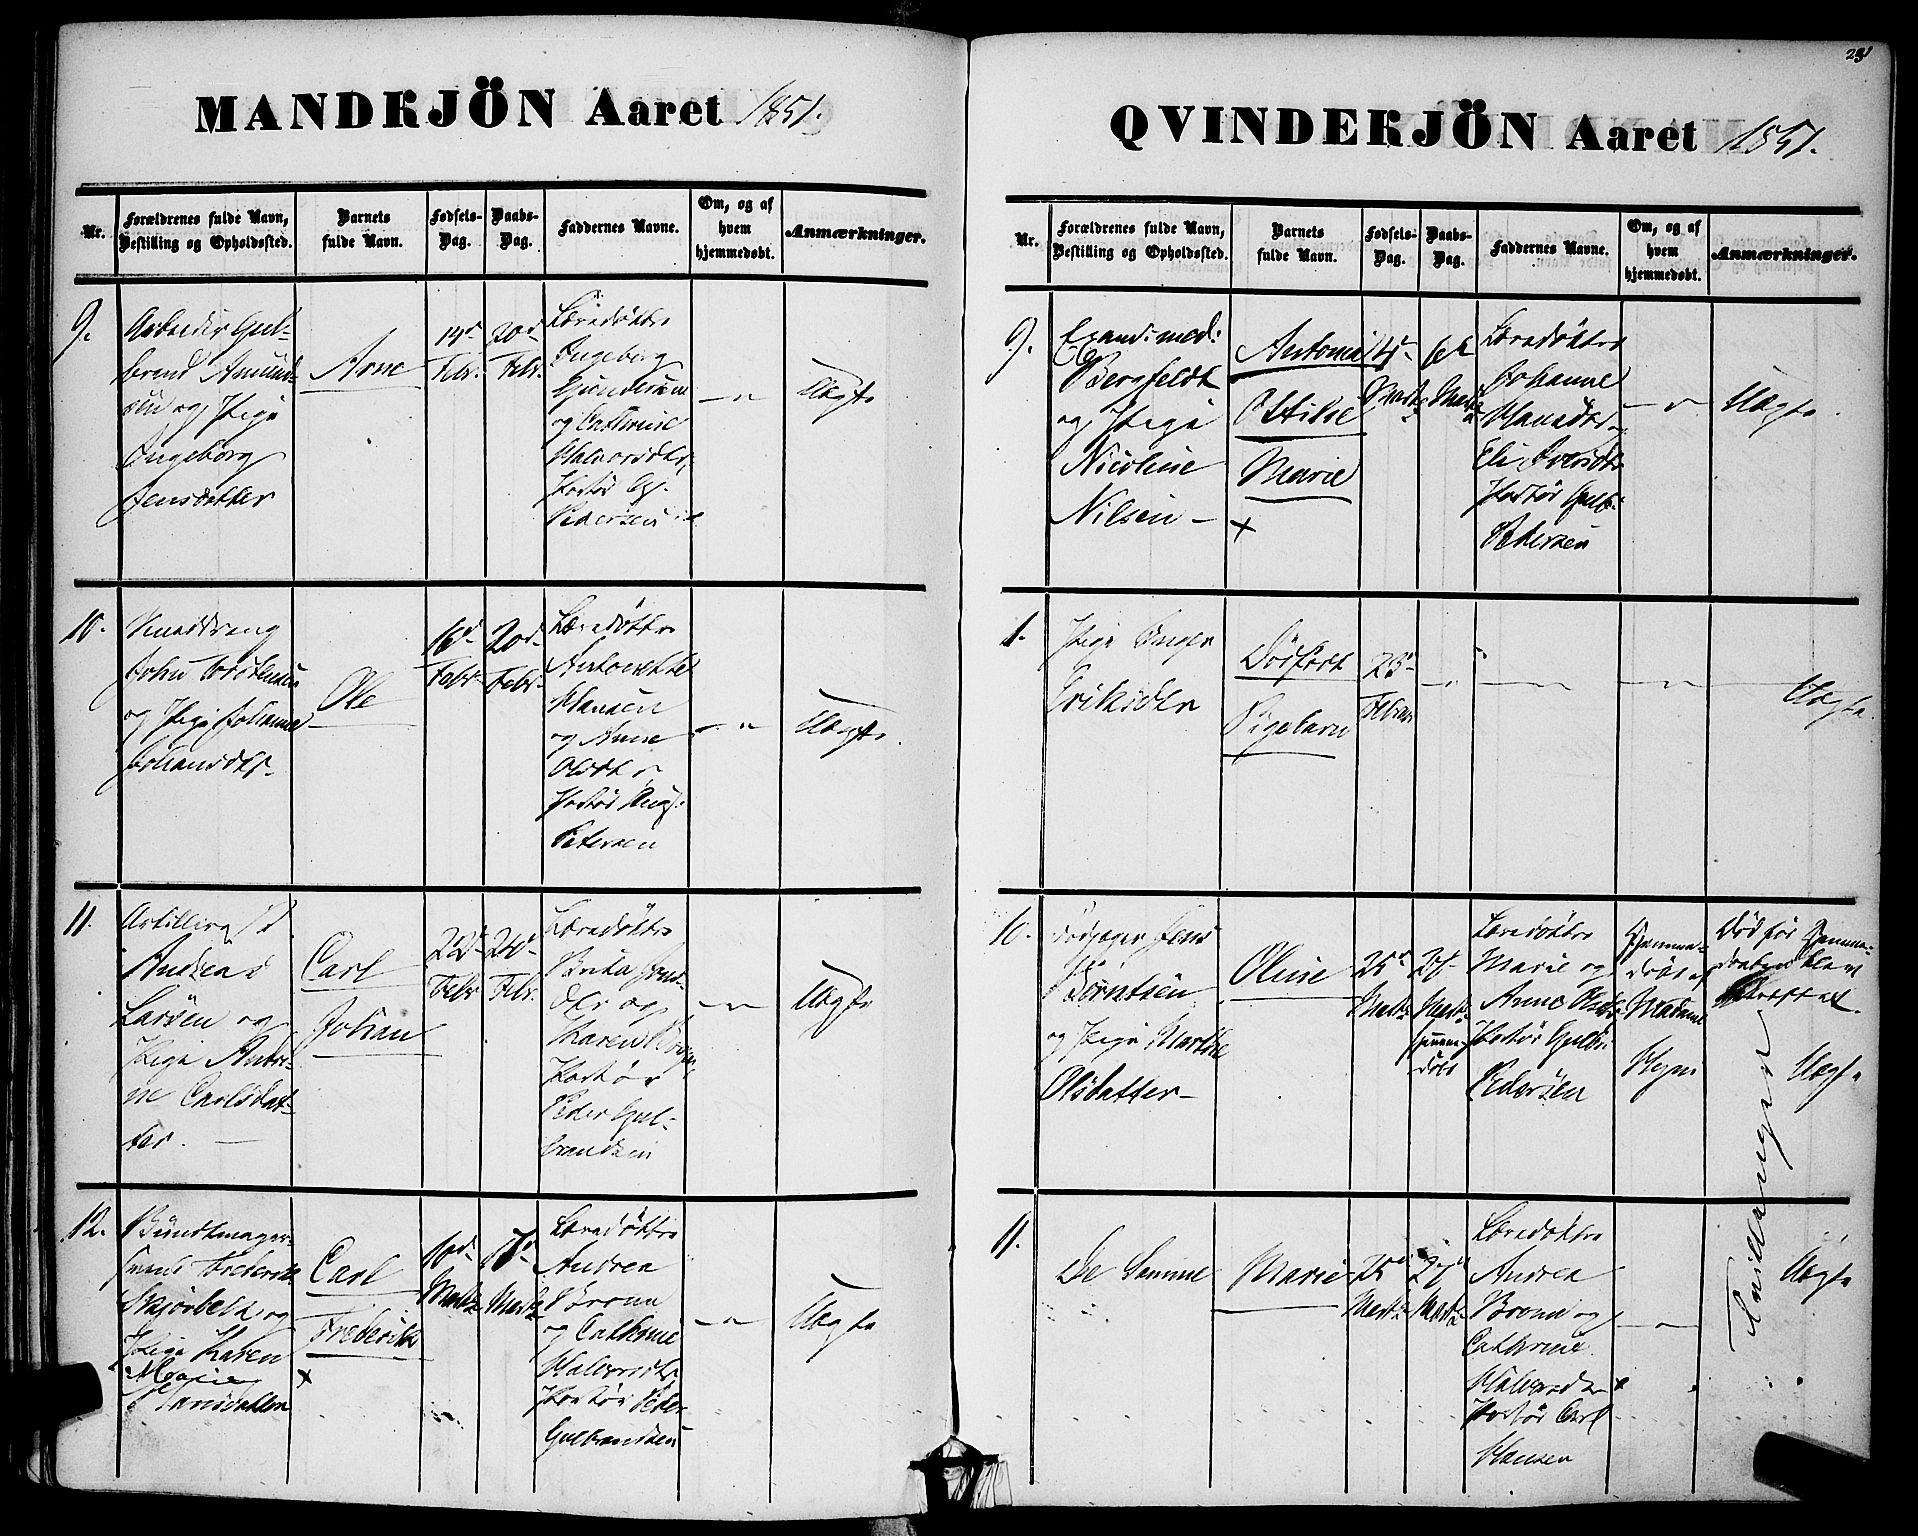 MANDKJÖN Aaret 1851.
Nr.
Forældrenes fulde Navn,
Bestilling og Opholdssted.
Barnets
fulde Navn.
Fødsels-
Dag.
Daabs-
Dag.
Faddernes Navne.
Om, og af
hvem
hjemmedøbt.
Anmærkninger.
9.
Arbeider Gul-
brand Amund-
sen og Pige
Ingeborg
Jensdatter
Arne
14d
Febr.
20d
Febr.
Læredøttre
Ingeborg
Gundersen
og Cathrine
Halvorsdtr,
Portør
Pedersen
Uægte
10.
John Torstensen
og Pige Johanne
Johansdtr.
Ole
16d
Febr
20d
Febr.
Læredøttre
Antonette
Hansen
og Anne
Olsdtr
Portør
Petersen
Uægte.
11.
Andreas
Larsen og
Pige Andri-
ne Carlsdat-
ter.
Carl
Johan
22d
Febr
24d
Febr.
Læredøttre
Brita
dtr og
Karen
Portør
Peder Gul-
brandsen
Uægte
12.
Bundtmager-
svend Frederik
Skjørbek og
Pige Karen
Marie
Hansdatter
Carl
Frederik
×
10d
Marts
17d
Marts
Læredøttre
Andrea
Broma
og Cathrine
Halvorsdtr
Portør Peder
Gulbrandsen
Uægte
231
QVINDERKJÖN Aaret 1851.
Nr.
Forældrenes fulde Navn,
Bestilling og Opholdssted.
Barnets
fulde Navn.
Fødsels-
Dag.
Daabs-
Dag.
Faddernes Navne.
Om, og af
hvem
hjemmedøbt.
Anmærkninger.
9.
Exand: med:
Bergfeldt
og Pige
Nicoline
Nilsen –
Antonie
Ottilie
Marie
×
Marts
6d
Marts
Læredøttre
Johanne
Hansdtr
Eli Iversdtr
Portør Gulb:
Pedersen
Uægte.
1.
Pige Inger
Eriksdtr
Dødfødt
Pigebarn
23d
Februar
Uægte.
10.
Jens
Berntsen
og Pige Marthe
Olsdatter –
Oline
25d
Marts
27.
Marts
hjemme-
døbt
Læredøttre
Marie og
Anne Olsdtr
Portør Gulb:
Pedersen
Hjemme-
døbt af
Madame
Død før Hjemme-
daaben blev
Uægte
Tvillinger
11.
De Samme
Marie
25d
Marts
27d
Marts
Læredøttre
Andrea
Broma og
Cathrine
Halvorsdtr
Portør Carl
Hansen
Uægte